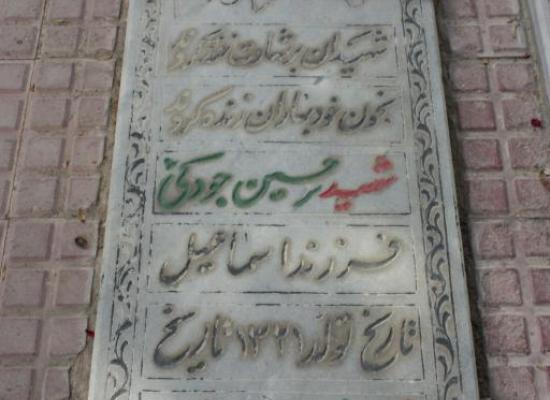 شهیدان بر شهادت خنده کردند
بخون خود بهاران زنده کردند
شهید حسین جودکی
فرزند اسماعیل
تاریخ تولد ۱۳۲۱ تاریخ